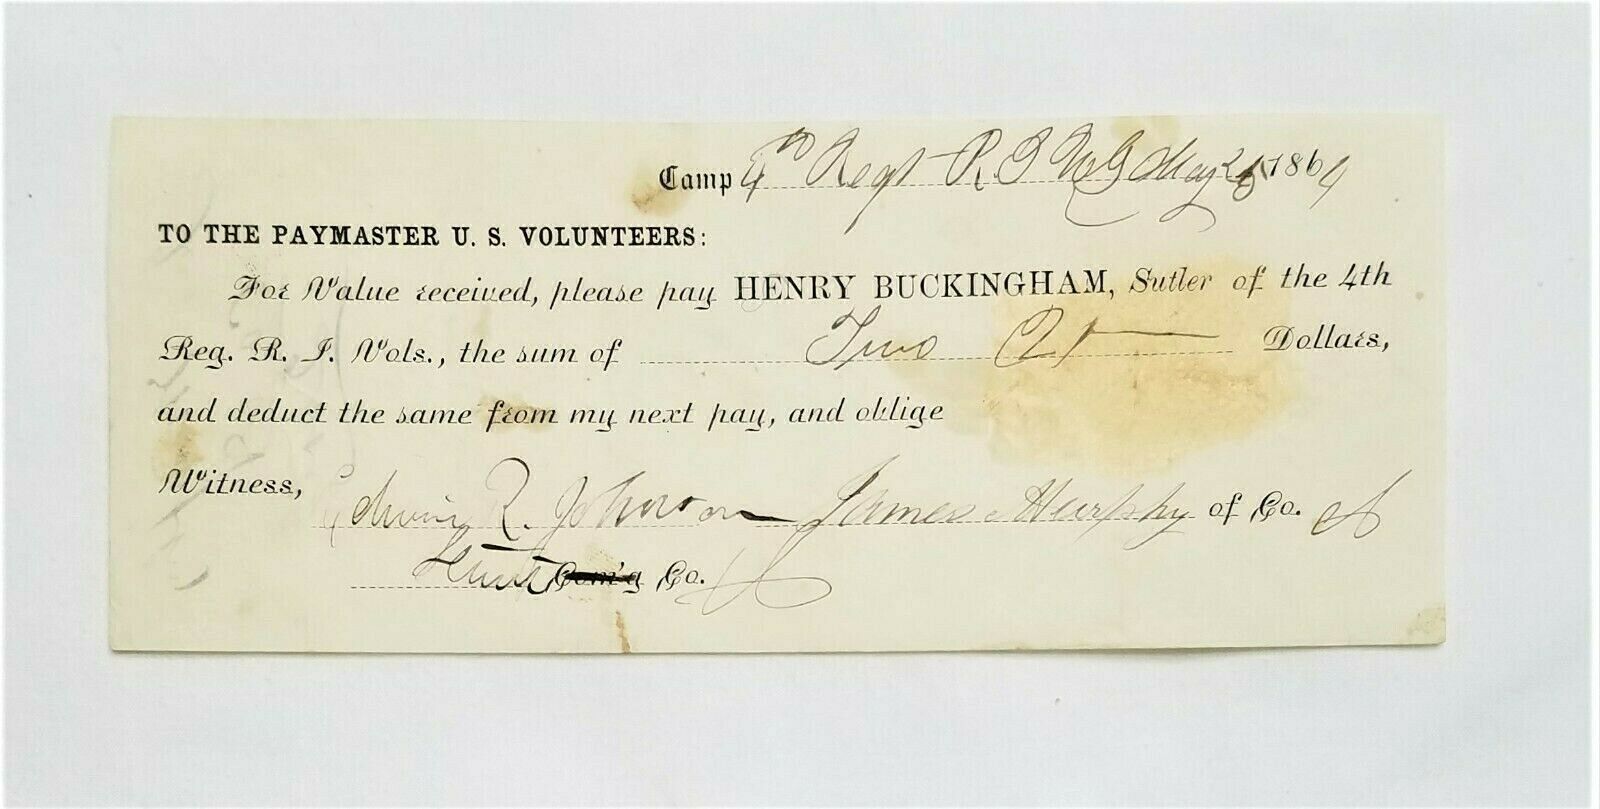 Camp 4th Regt R. I. May 1864
TO THE PAYMASTER U. S. VOLUNTEERS:
For Value received, please pay HENRY BUCKINGHAM, Sutler of the 4th
Reg. R. I. Vols., the sum of Two Dollars,
and deduct the same from my next pay, and oblige
Witness,
Edwin R. Johnson James Murphy of Co. A
Lieut Com'g Co. A